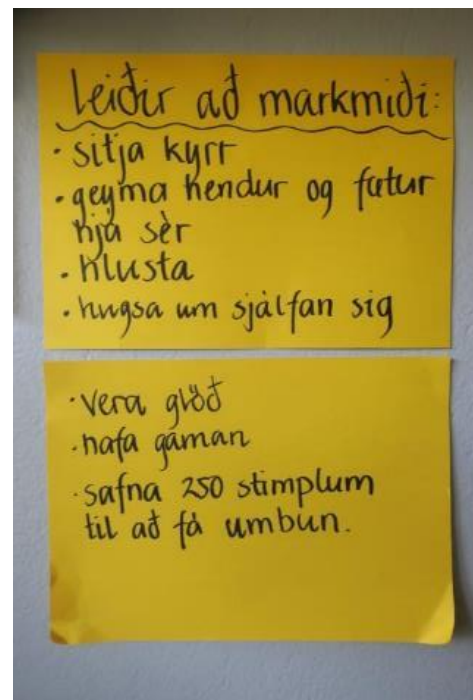 Leiðir að markmiði:
• sitja kyrr
• geyma hendur og fætur
hjá sèr
• hlusta
• hugsa um sjàlfan sig
• vera glöð
• hafa gaman
• safna 250 stimplum
til að fá umbun.